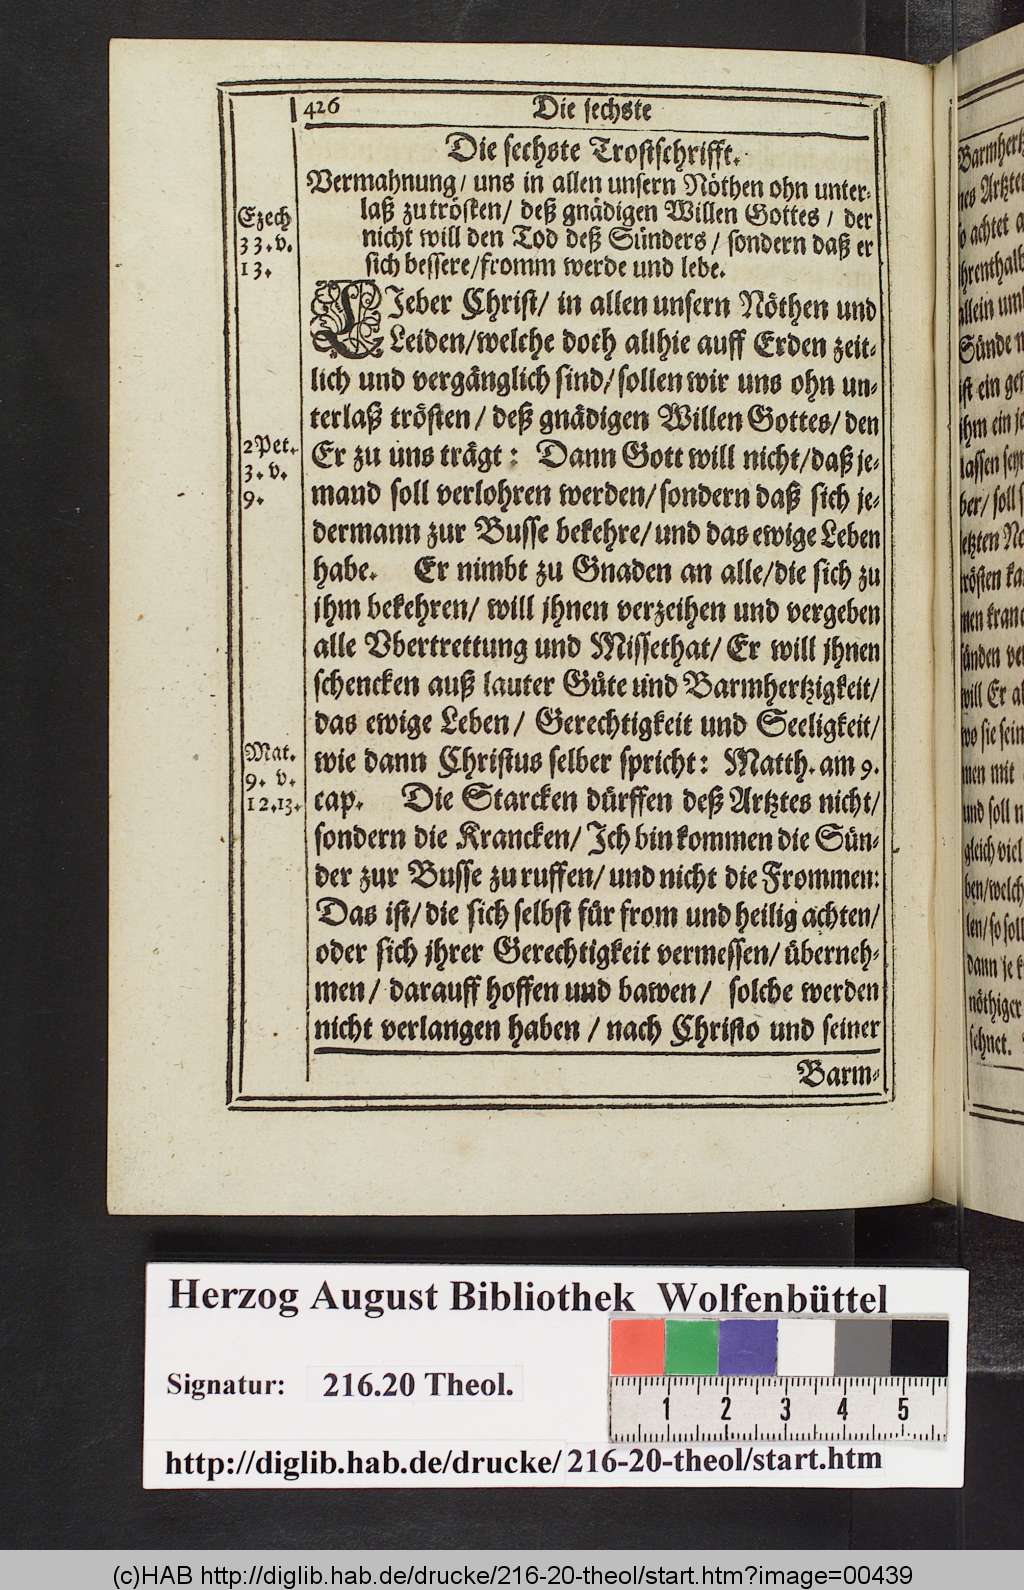 426
Die sechste
Die sechste Trostschrifft.
Vermahnung/ uns in allen unsern Nöthen ohn unter-
laß zu trösten/ deß gnädigen Willen Gottes/ der
nicht will den Tod deß Sünders/ sondern daß er
sich bessere/ fromm werde und lebe.
Ezech
33. v.
13.
LIeber Christ/ in allen unsern Nöthen und
Leiden/ welche doch allhie auff Erden zeit-
lich und vergänglich sind/ sollen wir uns ohn un-
terlaß trösten/ deß gnädigen Willen Gottes/ den
Er zu uns trägt: Dann Gott will nicht/ daß je-
mand soll verlohren werden/ sondern daß sich je-
dermann zur Busse bekehre/ und das ewige Leben
habe. Er nimbt zu Gnaden an alle/ die sich zu
jhm bekehren/ will jhnen verzeihen und vergeben
alle Vbertrettung und Missethat/ Er will jhnen
schencken auß lauter Güte und Barmhertzigkeit/
das ewige Leben/ Gerechtigkeit und Seeligkeit/
wie dann Christus selber spricht: Matth. am 9.
cap. Die Starcken dürffen deß Artztes nicht/
sondern die Krancken/ Ich bin kommen die Sün-
der zur Busse zu ruffen/ und nicht die Frommen:
Das ist/ die sich selbst für from und heilig achten/
oder sich jhrer Gerechtigkeit vermessen/ überneh-
men/ darauff hoffen und bawen/ solche werden
nicht verlangen haben/ nach Christo und seiner
Barm-
2 Pet.
3. v.
9.
Mat.
9. v.
12.13.
Barmhertz
nes Artzte
so achtet
ihrenthalb
allein um
Sünde
ist ein
ihm ein je
lassen sey
ber/ soll
etzten No
trösten ka
men kranc
sünden ver
will Er al
wo sie sein
men mit
und soll n
gleich viel
ben/ welch
len/ so soll
dann je k
nöthiger
sehnet.
Herzog August Bibliothek Wolfenbüttel
Signatur: 216.20 Theol.
http://diglib.hab.de/drucke/216-20-theol/start.htm
1 2 3 4 5
(c)HAB http://diglib.hab.de/drucke/216-20-theol/start.htm?image=00439